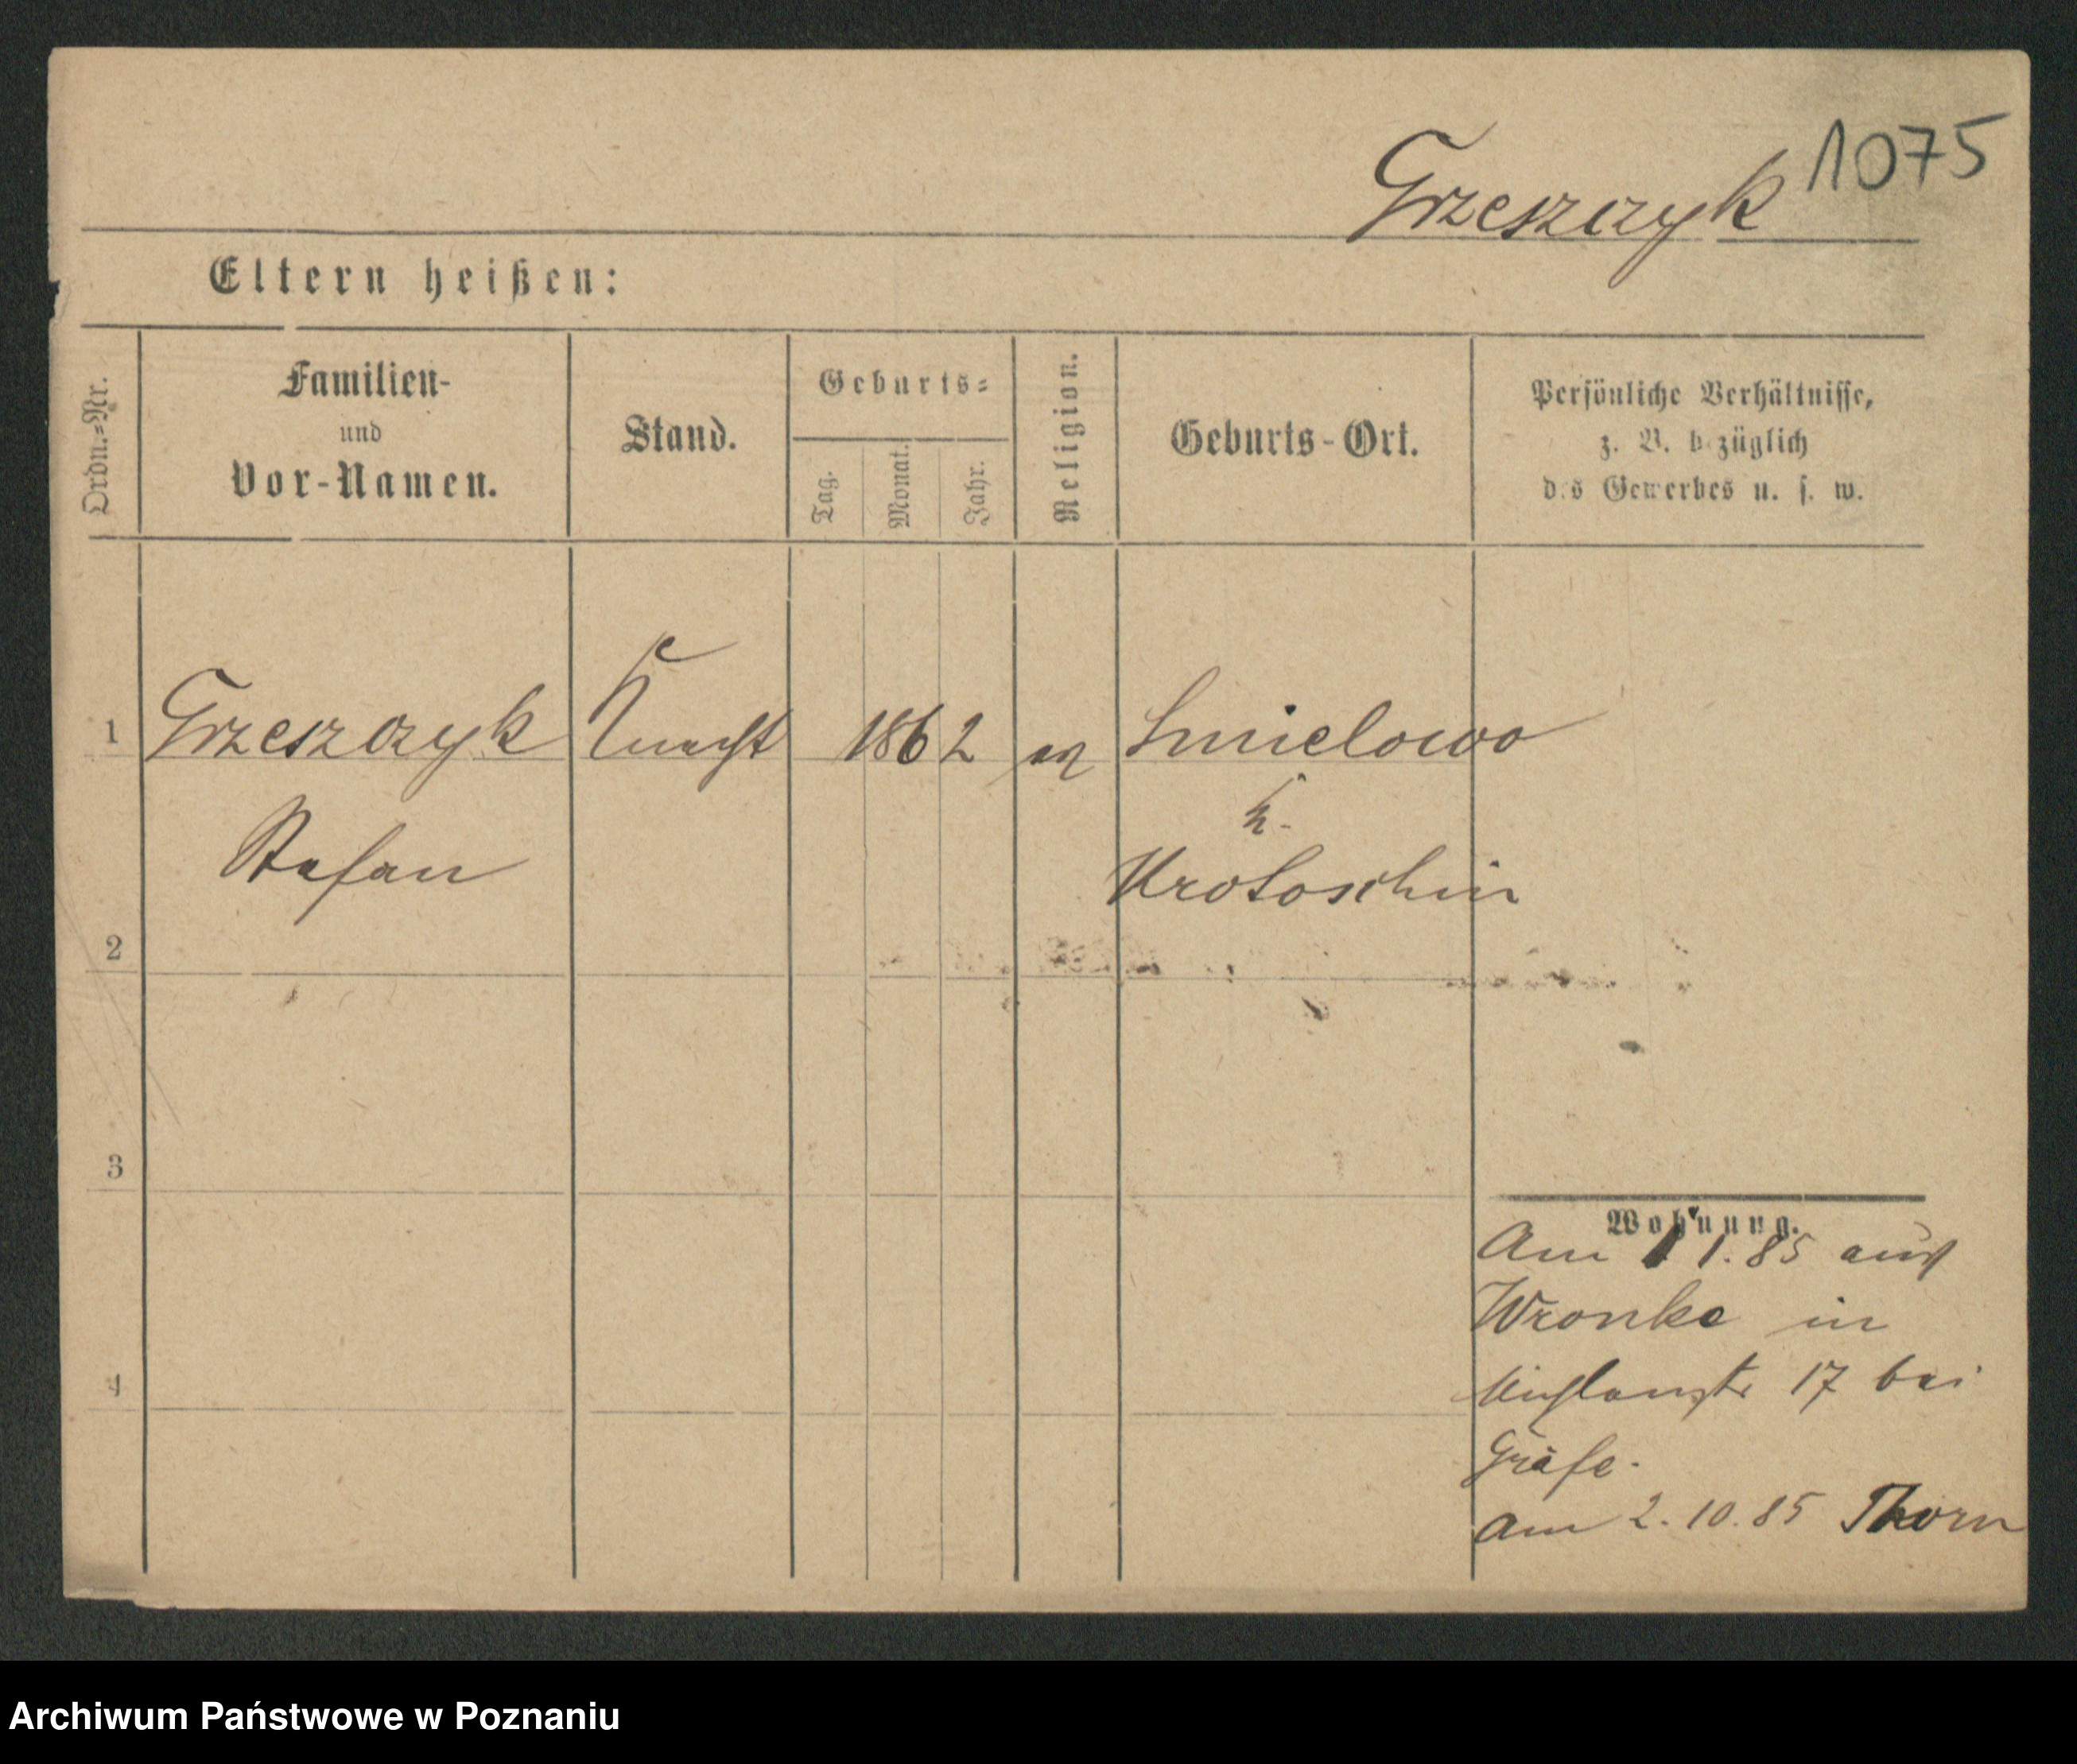 1075
Grzeszczyk
Eltern heißen:
Ordn.=Nr.
Familien-
und
Vor-Namen.
Stand.
Geburts=
Tag.
Monat.
Jahr.
Religion.
Geburts-Ort.
Persönliche Verhältnisse,
z. B. bezüglich
des Gewerbes u. s. w.
1
Grzeszczyk
Knecht
1862
Smielowo
Stefan
Krotoschin
2
3
4
Wohnung.
Am 1.85 aus
Wronke in
17 bei
Gräfe.
am 2.10.85 Thorn
Archiwum Państwowe w Poznaniu